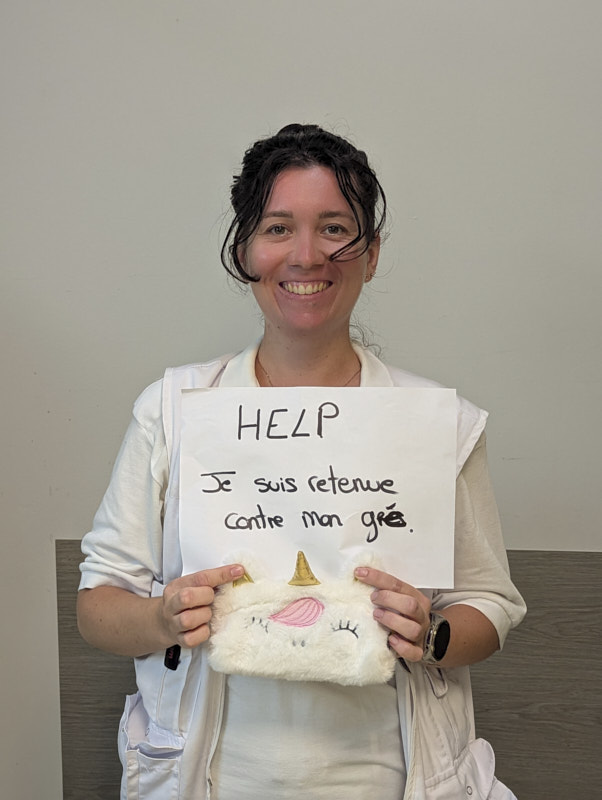 HELP
Je suis retenue
contre mon grés.